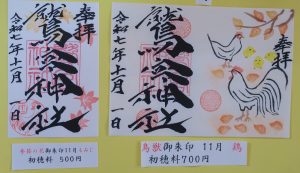 奉拝
鷲神社
令和七年十一月一日
季節の花御朱印11月もみじ
初穂料 500円
奉拝
鷲神社
令和七年十一月一日
鳥獣御朱印 11月 鶏
初穂料700円